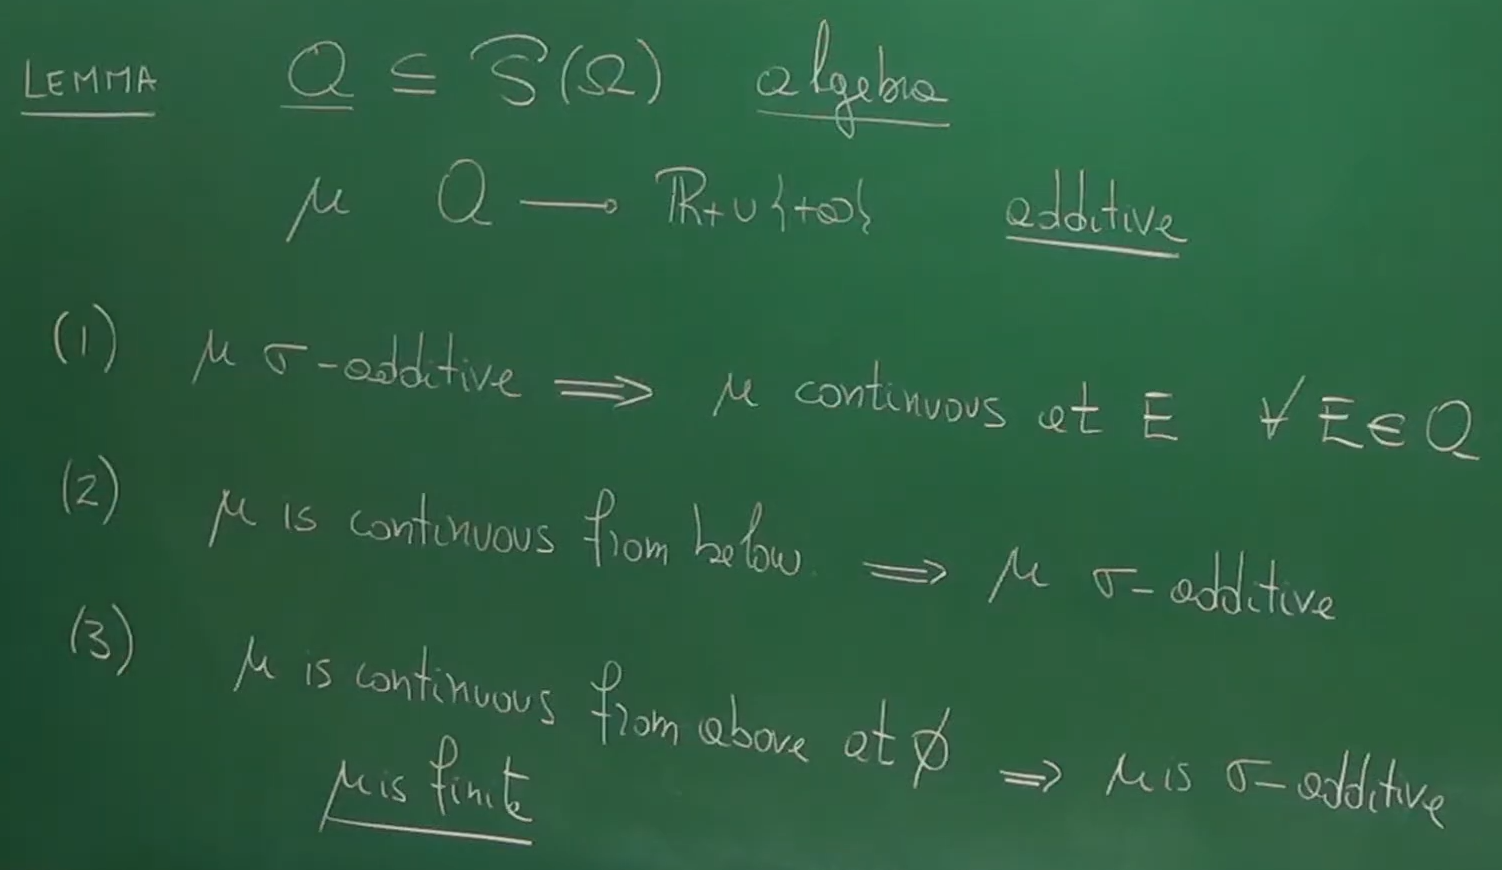 LEMMA a ⊆ P(Ω) algebra
μ a → ℝ₊ ∪ {+∞} additive
(1) μ σ-additive ⟹ μ continuous at E ∀ E ∈ a
(2) μ is continuous from below. ⟹ μ σ-additive
(3) μ is continuous from above at ∅ ⟹ μ is σ-additive
μ is finite